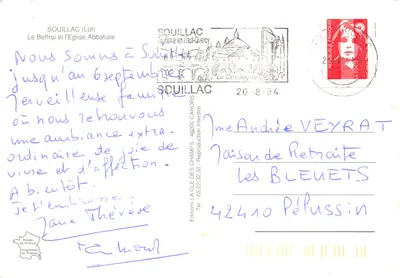 SOUILLAC (Lot)
Le Beffroi et l'Eglise Abbatiale
Nous sommes à Souillac
jusqu'au 6 septembre
Merveilleuse famille
où nous retrouvons
une ambiance extra-
ordinaire de joie de
vivre et d'affection.
A bientôt.
Je t'embrasse
Thérèse
SOUILLAC
La Dordogne
SOUILLAC
20-8-94
Editions LA CLE DES CHAMPS - 46000 CAHORS
Mme Andrée VEYRAT
Maison de Retraite
les BLEUETS
42410 Pélussin